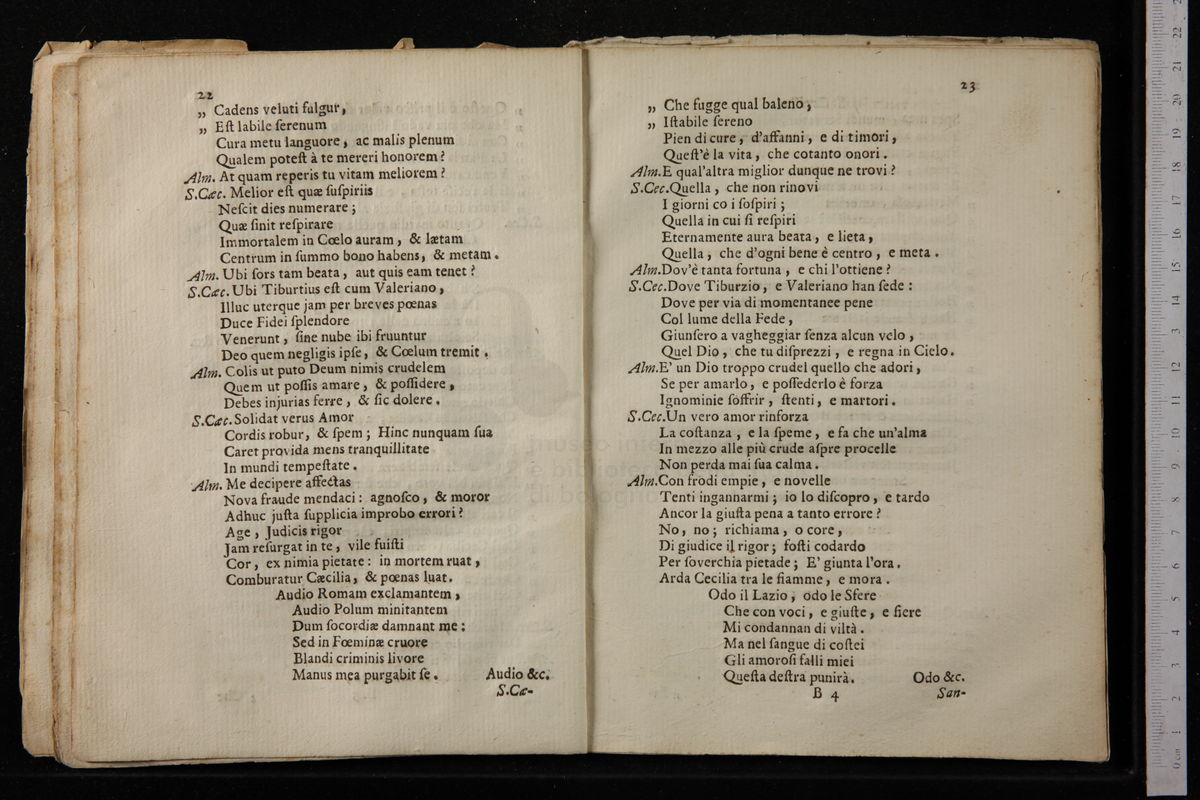 22
„ Cadens veluti fulgur,
„ Eſt labile ſerenum
Cura metu languore, ac malis plenum
Qualem poteſt à te mereri honorem?
Alm. At quam reperis tu vitam meliorem?
S.Cæc. Melior eſt quæ ſuſpiriis
Neſcit dies numerare;
Quæ ſinit reſpirare
Immortalem in Cœlo auram, & lætam
Centrum in ſummo bono habens, & metam.
Alm. Ubi ſors tam beata, aut quis eam tenet?
S.Cæc. Ubi Tiburtius eſt cum Valeriano,
Illuc uterque jam per breves pœnas
Duce Fidei ſplendore
Venerunt, ſine nube ibi fruuntur
Deo quem negligis ipſe, & Cœlum tremit.
Alm. Colis ut puto Deum nimis crudelem
Quem ut poſſis amare, & poſſidere,
Debes injurias ferre, & ſic dolere.
S.Cæc. Solidat verus Amor
Cordis robur, & ſpem; Hinc nunquam ſua
Caret provida mens tranquillitate
In mundi tempeſtate.
Alm. Me decipere affectas
Nova fraude mendaci: agnoſco, & moror
Adhuc juſta ſupplicia improbo errori?
Age, Judicis rigor
Jam reſurgat in te, vile fuiſti
Cor, ex nimia pietate: in mortem ruat,
Comburatur Cæcilia, & pœnas luat.
Audio Romam exclamantem,
Audio Polum minitantem
Dum ſocordiæ damnant me:
Sed in Fœminæ cruore
Blandi criminis livore
Manus mea purgabit ſe. Audio &c.
S.Cæ-
23
„ Che fugge qual baleno,
„ Iſtabile ſereno
Pien di cure, d'affanni, e di timori,
Queſt'è la vita, che cotanto onori.
Alm. E qual'altra miglior dunque ne trovi?
S.Cec. Quella, che non rinovi
I giorni co i ſoſpiri;
Quella in cui ſi reſpiri
Eternamente aura beata, e lieta,
Quella, che d'ogni bene è centro, e meta.
Alm. Dov'è tanta fortuna, e chi l'ottiene?
S.Cec. Dove Tiburzio, e Valeriano han ſede:
Dove per via di momentanee pene
Col lume della Fede,
Giunſero a vagheggiar ſenza alcun velo,
Quel Dio, che tu diſprezzi, e regna in Cielo.
Alm. E' un Dio troppo crudel quello che adori,
Se per amarlo, e poſſederlo è forza
Ignominie ſoffrir, ſtenti, e martori.
S.Cec. Un vero amor rinforza
La coſtanza, e la ſpeme, e fa che un'alma
In mezzo alle più crude aſpre procelle
Non perda mai ſua calma.
Alm. Con frodi empie, e novelle
Tenti ingannarmi; io lo diſcopro, e tardo
Ancor la giuſta pena a tanto errore?
No, no; richiama, o core,
Di giudice il rigor; foſti codardo
Per ſoverchia pietade; E' giunta l'ora.
Arda Cecilia tra le fiamme, e mora.
Odo il Lazio, odo le Sfere
Che con voci, e giuſte, e fiere
Mi condannan di viltà.
Ma nel ſangue di coſtei
Gli amoroſi falli miei
Queſta deſtra punirà. Odo &c.
B 4 San-